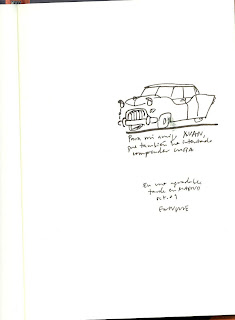 Para mi amigo JUAN,
que también ha intentado
comprender CUBA
En una agradable
tarde en MADRID
ENRIQUE